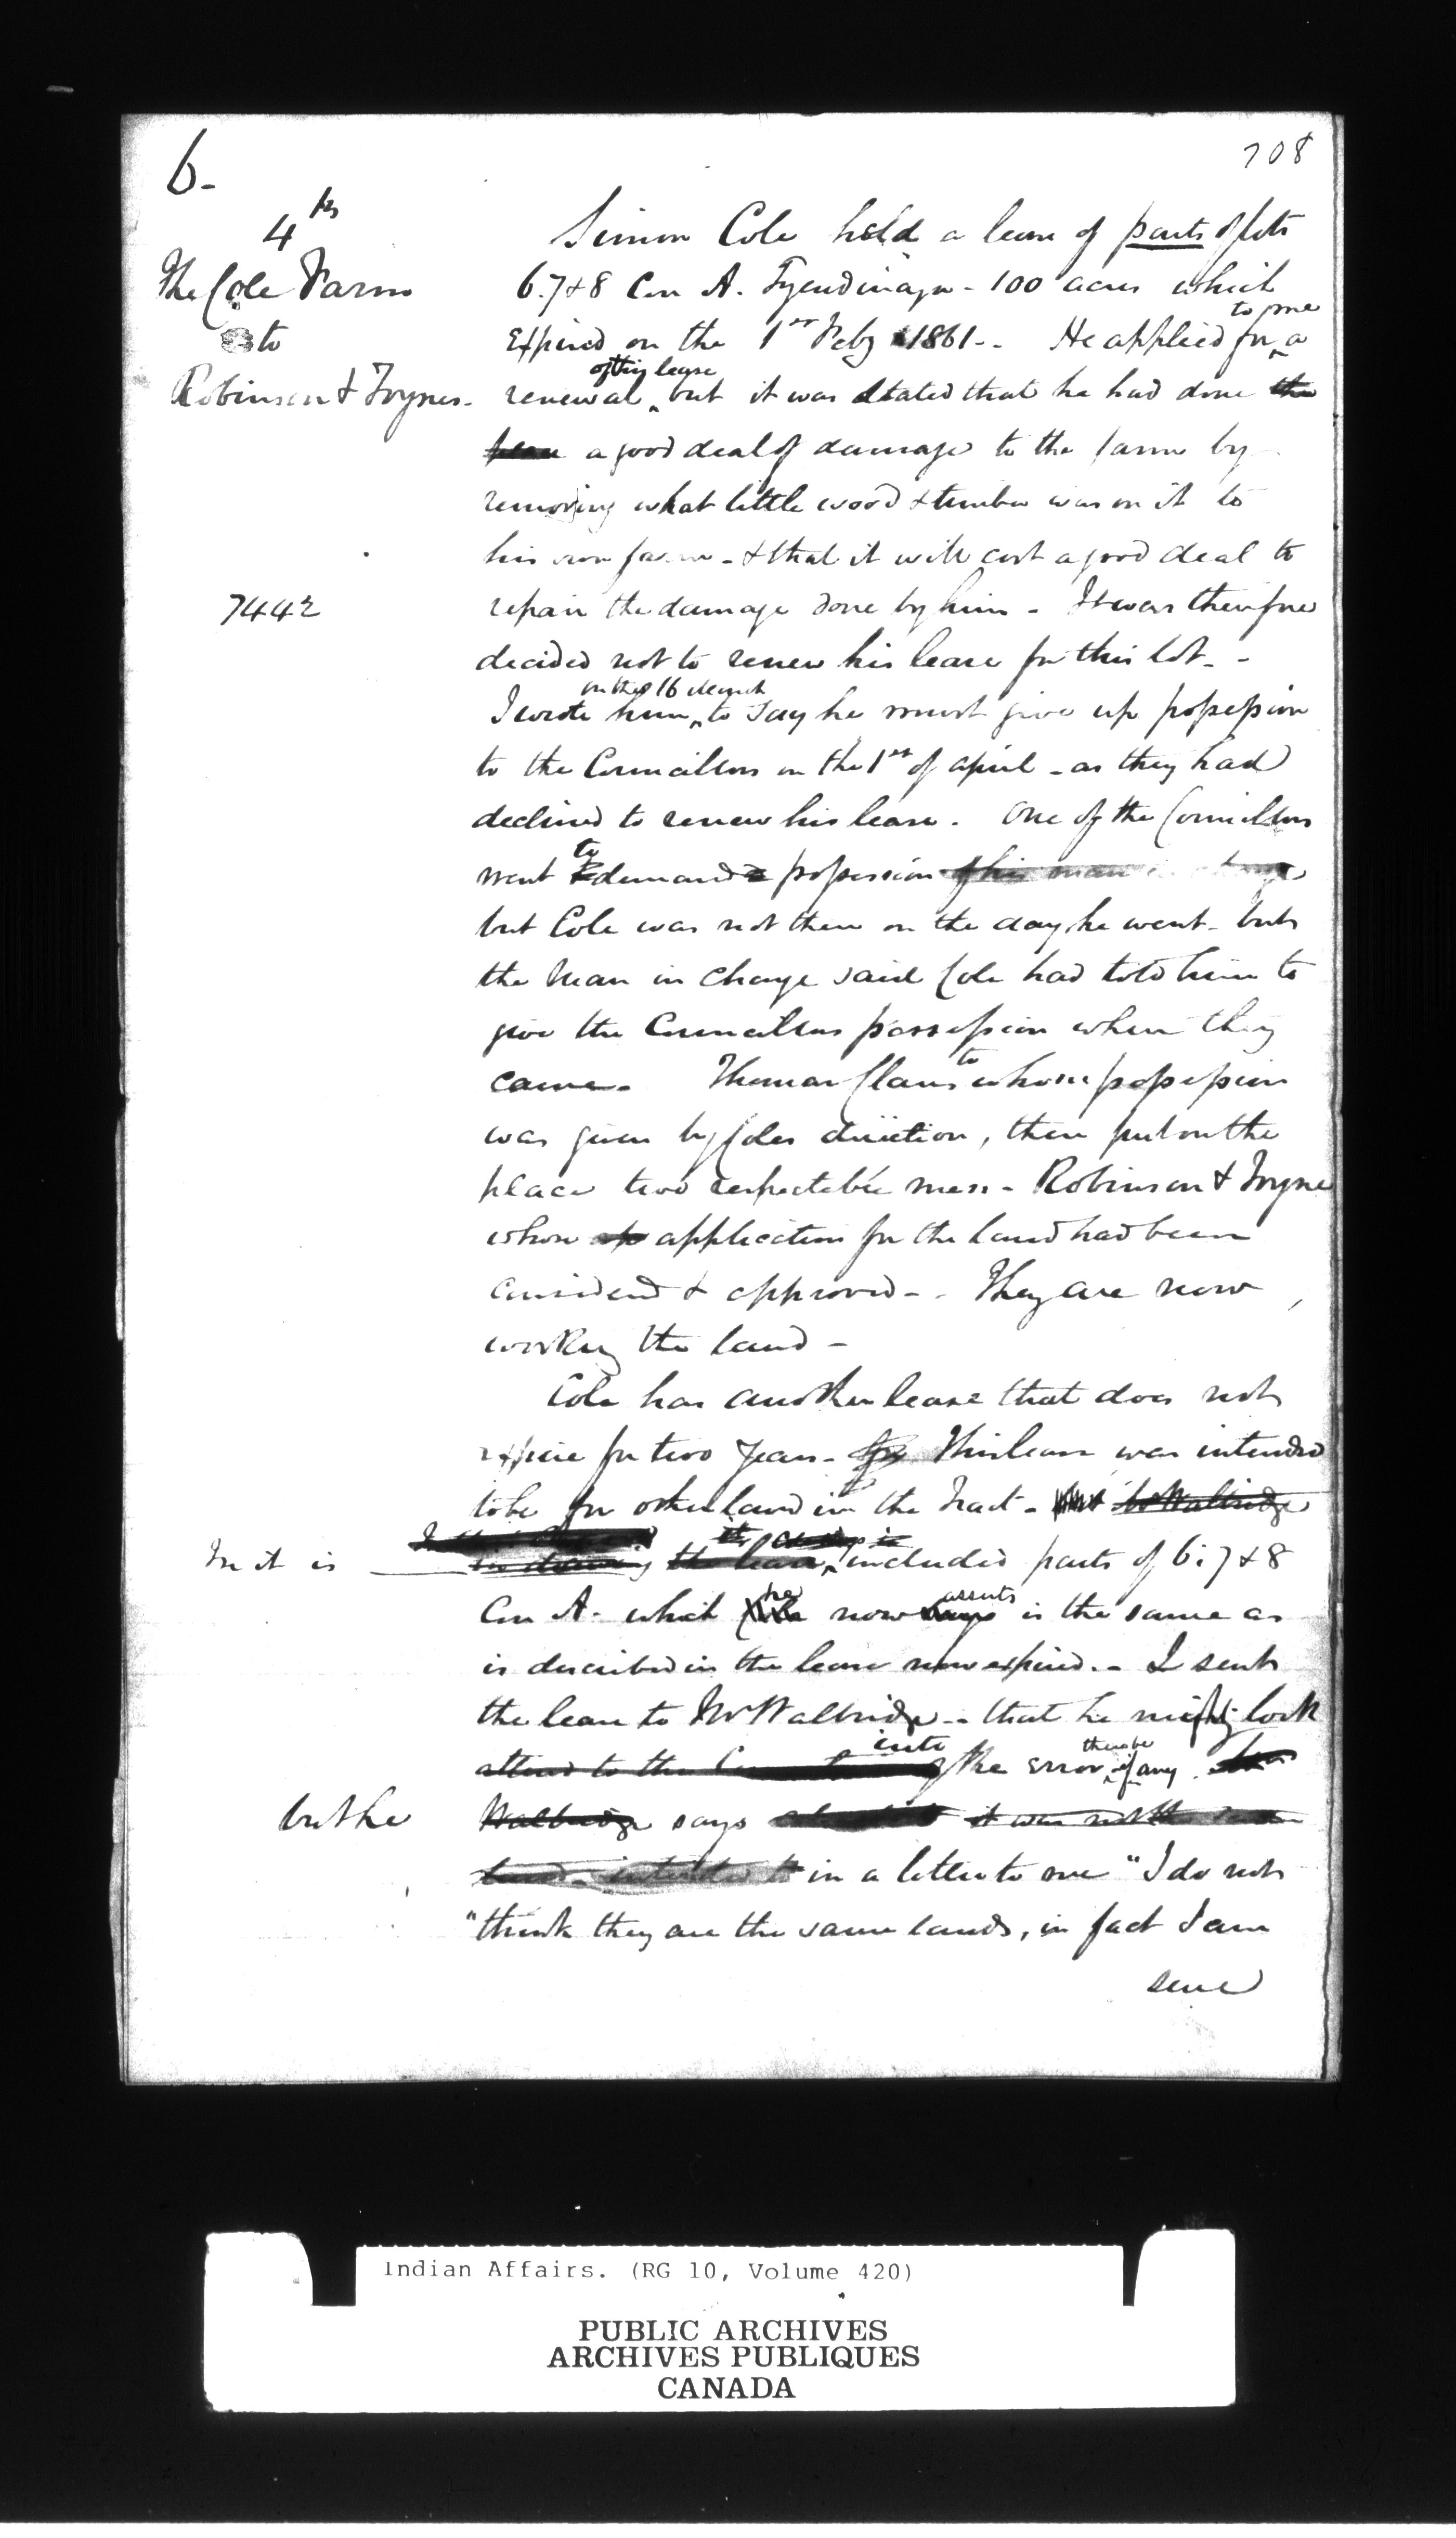 6-
708
4th
The Cole Farm
to
Robinson & Joyner.
Simon Cole held a lease of parts of lots
6.7 & 8 Con A. Tyendinaga - 100 acres which
to me
Expired on the 1st Feby 1861-. He applied for a
of this lease
renewal, but it was stated that he had done the
a good deal of damage to the farm by
removing what little wood & timber was on it to
his own farm - & that it will cost a good deal to
7442
repair the damage done by him - It was therefore
decided not to renew his lease for this lot. -
on the 16 March
I wrote him to say he must give up possession
to the Councillors on the 1st of april - as they had
declined to renew his lease. One of the Councillors
to
went demand possession of his man in charge
but Cole was not there on the day he went - but
the Man in charge said Cole had told him to
give the Councillors possession when they
came - Thomas Claus to whom possession
was given by Coles direction, then put on the
place two respectable men - Robinson & Joyne
whose application for the land had been
considered & approved - . They are now
working the land -
Cole has another lease that does not
expire for two years - This lease was intended
to be for other land in the Tract - Mr Walbridge
In it is
in drawing the lease, included parts of 6. 7 & 8
he asserts
Con A. which now says is the same as
is described in the lease now expired. - I sent
the lease to Mr Walbridge - that he might look
into there be
attend to the the error, if any.
but he
Walbridge says it was not the
in a letter to me "I do not
"think they are the same lands, in fact I am
sure
Indian Affairs. (RG 10, Volume 420)
PUBLIC ARCHIVES
ARCHIVES PUBLIQUES
CANADA